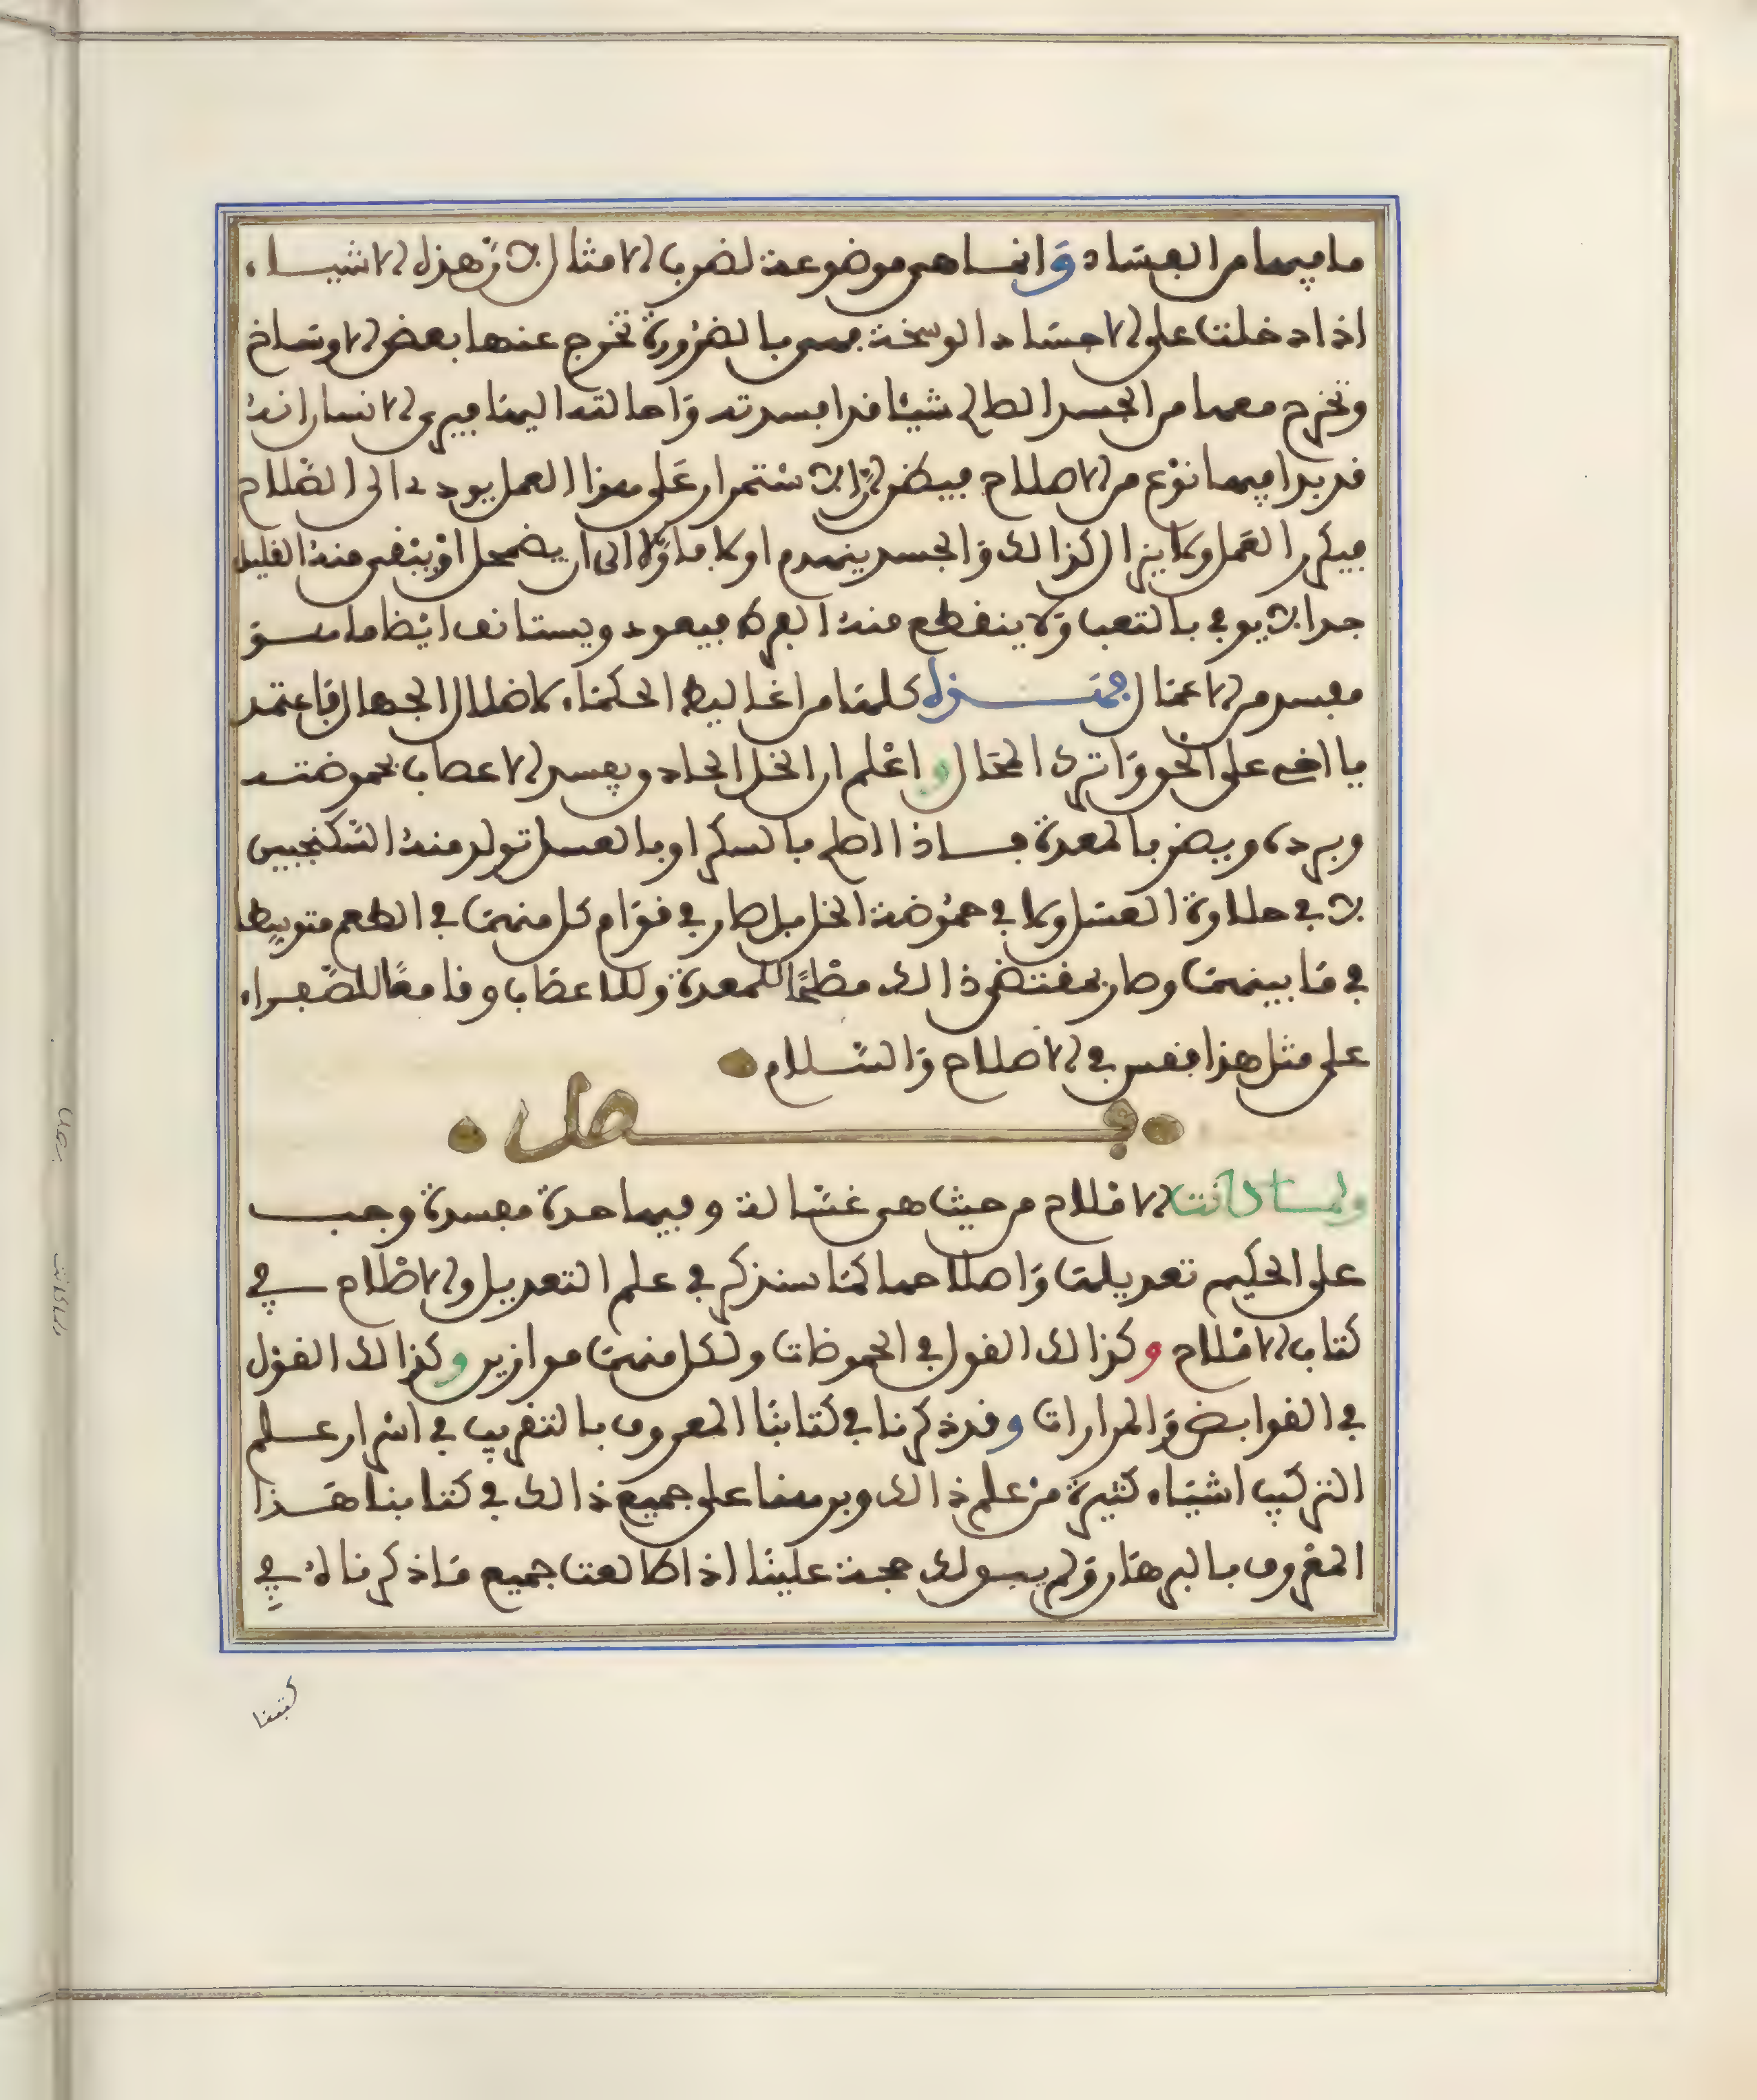 ما فيها من الفساد وانما هى موضوعة لضرب الامثال لان هذه الاشياء
اذا دخلت على الاجساد الوسخة فهى بالضرورة تخرج عنها بعض الاوساخ
وتخرج معها من الجسد الصالح شيئا قد افسدته واحالته اليها فيرى الانسان انه
قد بدا فيها نوع من الاصلاح فيظن ان الاستمرار على هذا العمل يودى الى الصلاح
فيكرر العمل ولا يزال كذالك والجسد ينهدم اولا فاولا الى ان يضمحل او يبقى منه القليل
جدا لا يوفى بالتعب ولا ينقطع منه الغرض فيعود ويستانف ايضا ما هو
مفسد من الاعمال فهذه كلها من اغاليط الحكماء لاضلال الجهال فاعتمد
يا اخى على الحق واترك المحال واعلم ان الخل الحاد يفسد الاعصاب بحموضته
وبرده ويضر بالمعدة فاذا اصلح بالسكر او بالعسل تولد منه السكنجبين
لا فى حلاوة العسل ولا فى حموضة الخل بل صار فى قوام كل منهما فى الطعم متوسطا
فى ما بينهما وصار بمقتضى ذالك مصلحا للمعدة وللاعصاب وقامعا للصفراء
على مثل هذا فقس فى الاصلاح والسلام
فصل
ولما كانت الاملاح من حيث هى غسالة وفيها حدة مفسدة وجب
على الحكيم تعديلها واصلاحها كما سنذكر فى علم التعديل والاصلاح فى
كتاب الاملاح وكذالك القول فى الحموضات ولكل منها موازين وكذالك القول
فى القوابض والمرارات وقد ذكرنا فى كتابنا المعروف بالتقريب فى اسرار علم
التركيب اشياء كثيرة من علم ذالك وبرهنا على جميع ذالك فى كتابنا هذا
المعروف بالبرهان ولم يبق لك حجة علينا اذا طالعت جميع ما ذكرناه فى
كتبنا
فصل
ولما كانت